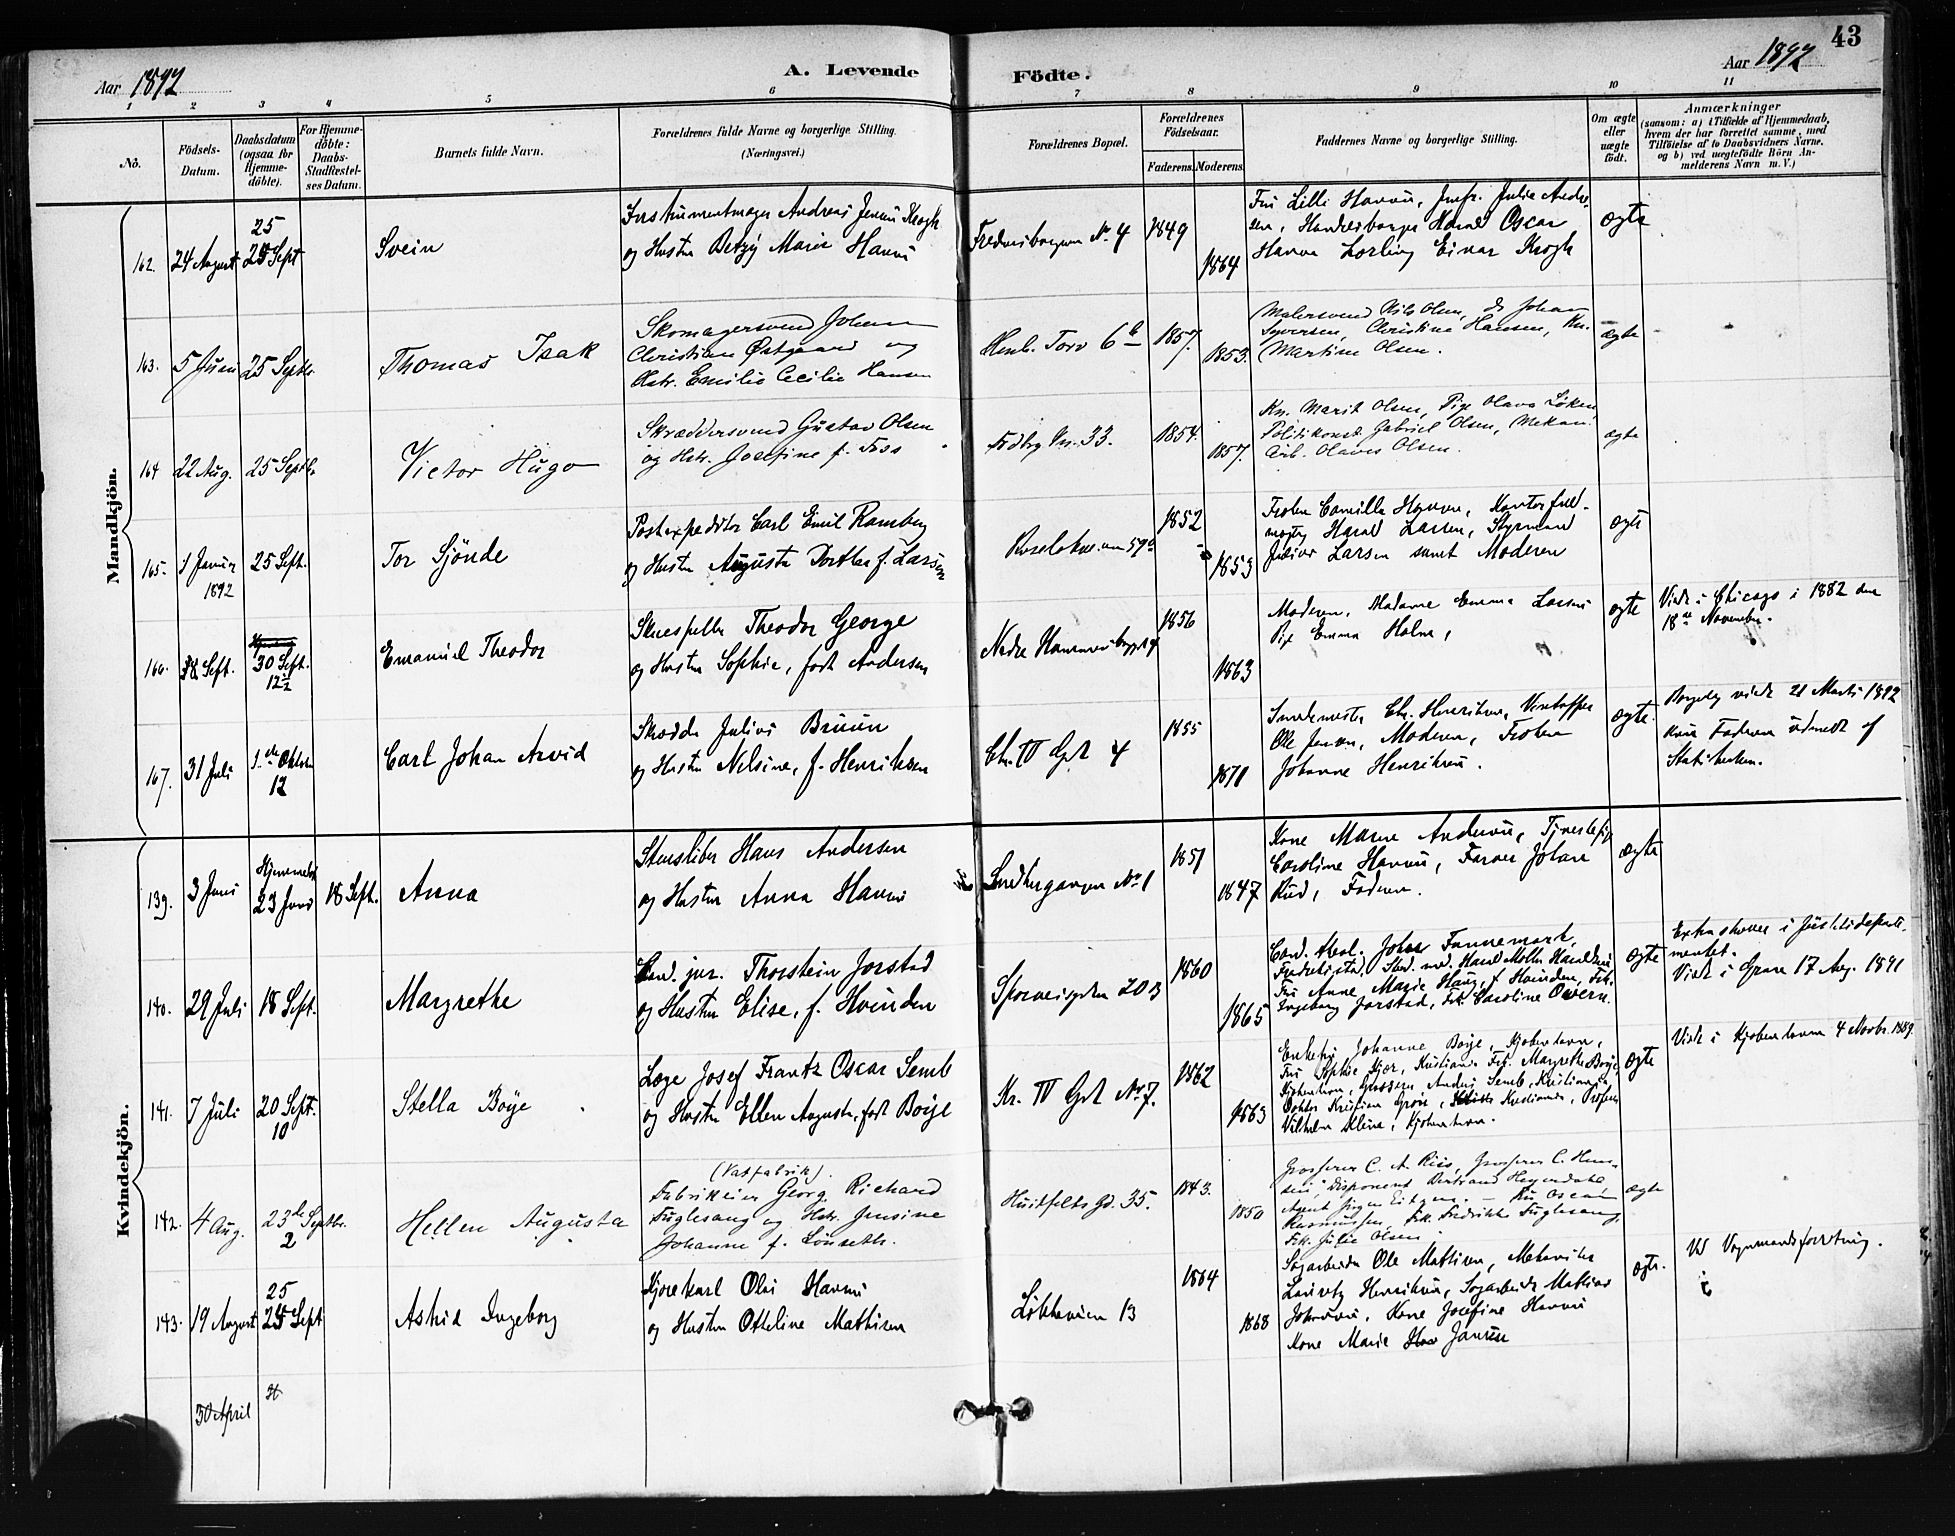 43
Aar 1892
A. Levende Födte.
Aar 1892
1 2 3 4 5 6 7 8 9 10 11
No.
Födsels-Datum.
Daabsdatum (ogsaa for Hjemme-döbte).
For Hjemme-döbte: Daabs-Stadfæstel-ses Datum.
Barnets fulde Navn.
Forældrenes fulde Navne og borgerlige Stilling. (Næringsvei.)
Forældrenes Bopæl.
Forældrenes Födselsaar.
Faderens. Moderens.
Faddernes Navne og borgerlige Stilling.
Om ægte eller uægte født.
Anmærkninger
(saasom: a) i Tilfælde af Hjemmedaab, hvem der har forrettet samme, med Tilföielse af to Daabsvidners Navne, og b) ved uægtefödte Börn An-melderens Navn m. V.)
Mandkjön.
162. 24 August 25 Sept Svein
Instrumentmager Andreas Jensen Krogh
og Hustru Betzy Marie
No 4 1849 1864
Fru Lilli Jmfr. Julie
Harald Oscar
Einar Krogh
ægte
163. 5 Juni 25 Septbr. Thomas Isak
Skomagersvend Johan
Christian Østgaard og
Hstr. Emilie Cecilie Hansen
Torv 6 b 1857. 1853.
Malersvend Nils Olsen, do Johan
Syversen, Christine Hansen, Kn.
Martine Olsen.
ægte
164 22 Aug. 25 Septbr Victor Hugo
Skræddersvend Gustav Olsen
og Hstr. Josefine f. Foss
33. 1854. 1857.
Kn. Marit Olsen, Pige Olava Løken,
Politikonst. Gabriel Olsen, Mekan.
Arb. Olaves Olsen.
ægte
165. 1 Januar 1892 25 Sept. Tor Sjönde
Postexpeditör Carl Emil Ramberg
og Hustru Augusta Dorthea f. Larsen
1852 1853
Frøken Camilla
Harald Larsen, Styrmand
Julius Larsen samt Moderen
ægte
166. 18 Sept. 30 Sept. 12½ Emanuel Theodor
Skuespiller Theodor George
og Hustru Sophie, født Andersen
Nedre 1856 1863
Moderen, Madame Emma Larsen
Pige Emma Holm,
ægte
Viede i Chicago i 1882 den
18de November.
167. 31 Juli 1. Oktober 12 Carl Johan Arvid
Skrædder Julius Bruun
og Hustru Nelsine, f. Henriksen
Chr. IV Gade 4 1855 1871
Smedmester Chr. Henriksen,
Ole Jensen, Moderen, Frøken
Johanne Henriksen.
ægte.
Borgerlig viede 21 Marts 1892
Faderen udmeldt af
Statskirken.
Kvindekjön.
139. 3 Juni Hjemmedøbt 23 Juni 18 Sept. Anna
Stensliber Hans Andersen
og Hustru Anna Hansen
No 1 1851 1847
Kone Maren Andersen, Tjenestepige
Caroline Hansen, Farver Johan
Rud, Faderen.
ægte
140. 29 Juli 18 Sept. Margrethe
Cand. jur. Thorstein Jorstad
og Hustru Elise, f. Hvinden
Sporveisgaden 20 B 1860 1865
Cand. Johan Fannemark,
Fredrikstad, Stud. med. Harald
Fru Anne Marie Haug, f. Hvinden, Frk.
Ingeborg Jorstad, Frk. Caroline Owren.
ægte
Extraskriver i Justitsdeparte-
mentet.
Viede i Grane 17 Aug. 1891
141. 7 Juli 20 Sept. 10 Stella Boye
Læge Josef Frantz Oscar Semb
og Hustru Ellen Augusta, født Boije
Kr. IV Gade No 7. 1862 1863
Enkefru Johanne Boije, Kjøbenhavn,
Fru Sophie Kjær, Kristiania Frk. Margrethe Boije,
Kjøbenhavn, Anders Semb, Kristiania,
Doktor Kristian Grøn, Kristiania,
Vilhelm Klein, Kjøbenhavn.
ægte
Viede i Kjøbenhavn 4 Novbr. 1889.
142. 4 Aug. 23de Septbr. 2 Hellen Augusta
(Vatfabrik).
Fabrikeier Georg Richard
Fuglesang og Hstr. Jensine
Johanne f. Lönseth.
Huitfelts Gd. 35. 1843. 1850
Grosserer C. A. Riis, Grosserer C. Hen-
sen, Disponent Bertrand Heyerdahl
Agent Jörgen Oscar
Rasmussen, Frk. Fredrikke Fuglesang,
Frk. Julie Olsen.
ægte
143. 19 August 25 Sept Astrid Ingeborg
Kjørekarl Olai Hansen
og Hustru Otteline Mathisen
Løkkeveien 13 1864 1868
Sagarbeider Ole Mathisen, Mekaniker
Lauritz Henriksen, Sagarbeider Mathias
Johansen, Kone Josefine Hansen
Kone Marie Jansen
ægte.
Ved Vognmandsforretning.
30 April